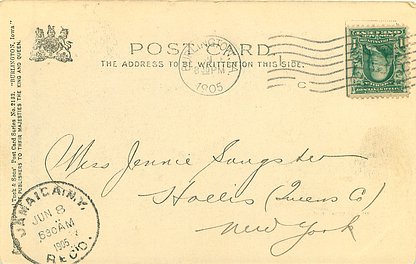 POST CARD
THE ADDRESS TO BE WRITTEN ON THIS SIDE.
8 PM
1905
C
Post Card Series No. 2132. "BURLINGTON, Iowa"
PUBLISHERS TO THEIR MAJESTIES THE KING AND QUEEN.
Miss Jennie Sangster
Hollis (Queens Co)
New York
JAMAICA N.Y.
JUN 8
530AM
1905
REC'D.